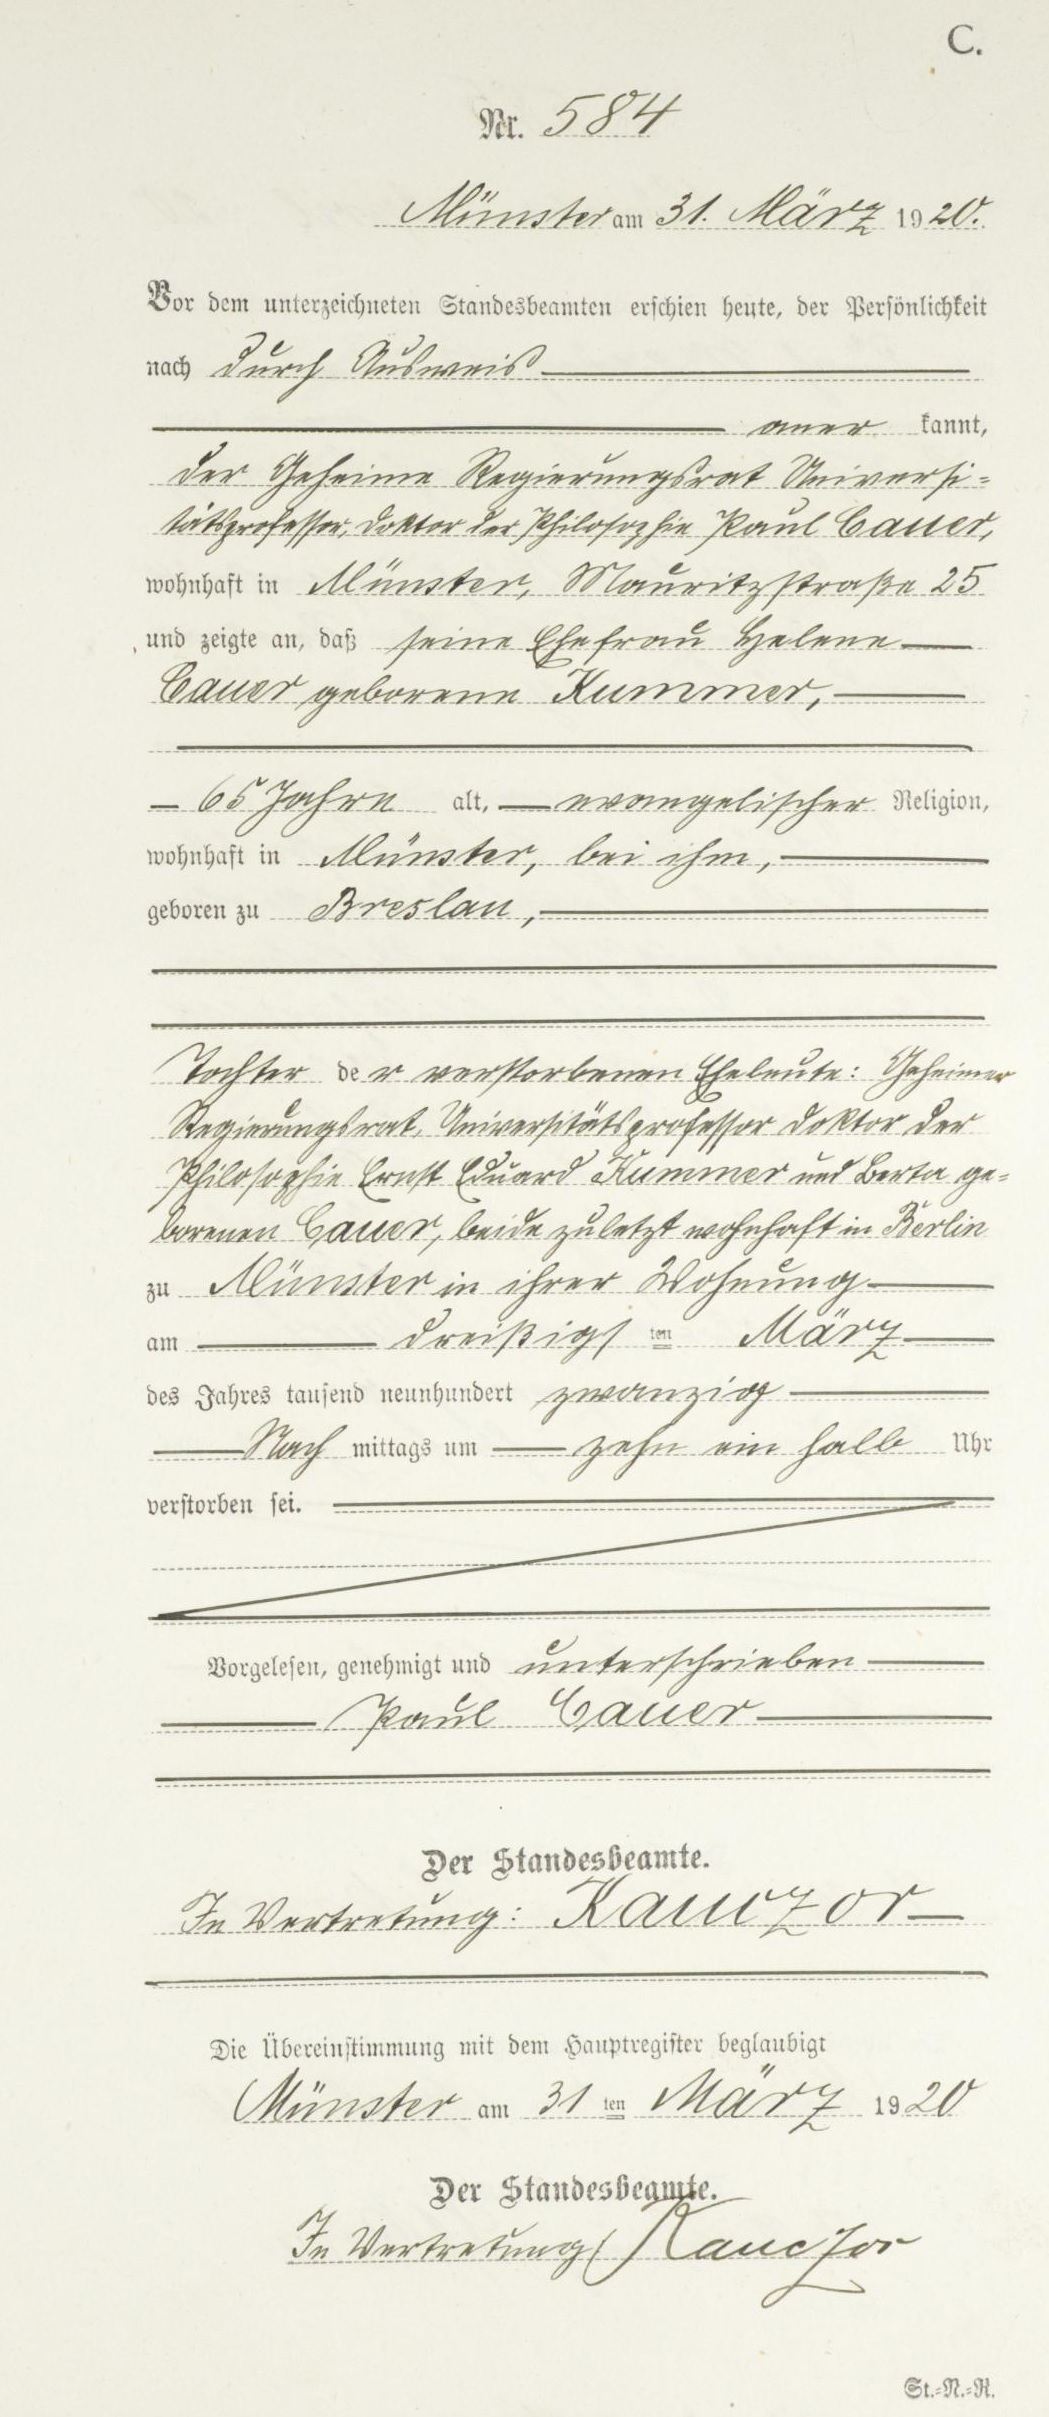 C.
Nr. 584
Münster am 31. März 1920.
Vor dem unterzeichneten Standesbeamten erschien heute, der Persönlichkeit
nach durch Ausweis
anerkannt,
der Geheime Regierungsrat Universi-
tätsprofessor, Doktor der Philosophie Paul Cauer,
wohnhaft in Münster, Mauritzstraße 25
und zeigte an, daß seine Ehefrau Helene
Cauer geborene Kummer,
65 Jahre alt, evangelischer Religion,
wohnhaft in Münster, bei ihm,
geboren zu Breslau,
Tochter der verstorbenen Eheleute: Geheimer
Regierungsrat, Universitätsprofessor Doktor der
Philosophie Ernst Eduard Kummer und Berta ge-
borenen Cauer, beide zuletzt wohnhaft in Berlin
zu Münster in ihrer Wohnung
am dreißigsten März
des Jahres tausend neunhundert zwanzig
Nachmittags um zehn ein halb Uhr
verstorben sei.
Vorgelesen, genehmigt und unterschrieben
Paul Cauer
Der Standesbeamte.
In Vertretung: Kauczor
Die Übereinstimmung mit dem Hauptregister beglaubigt
Münster am 31ten März 1920
Der Standesbeamte.
In Vertretung Kauczor
St.-N.-R.